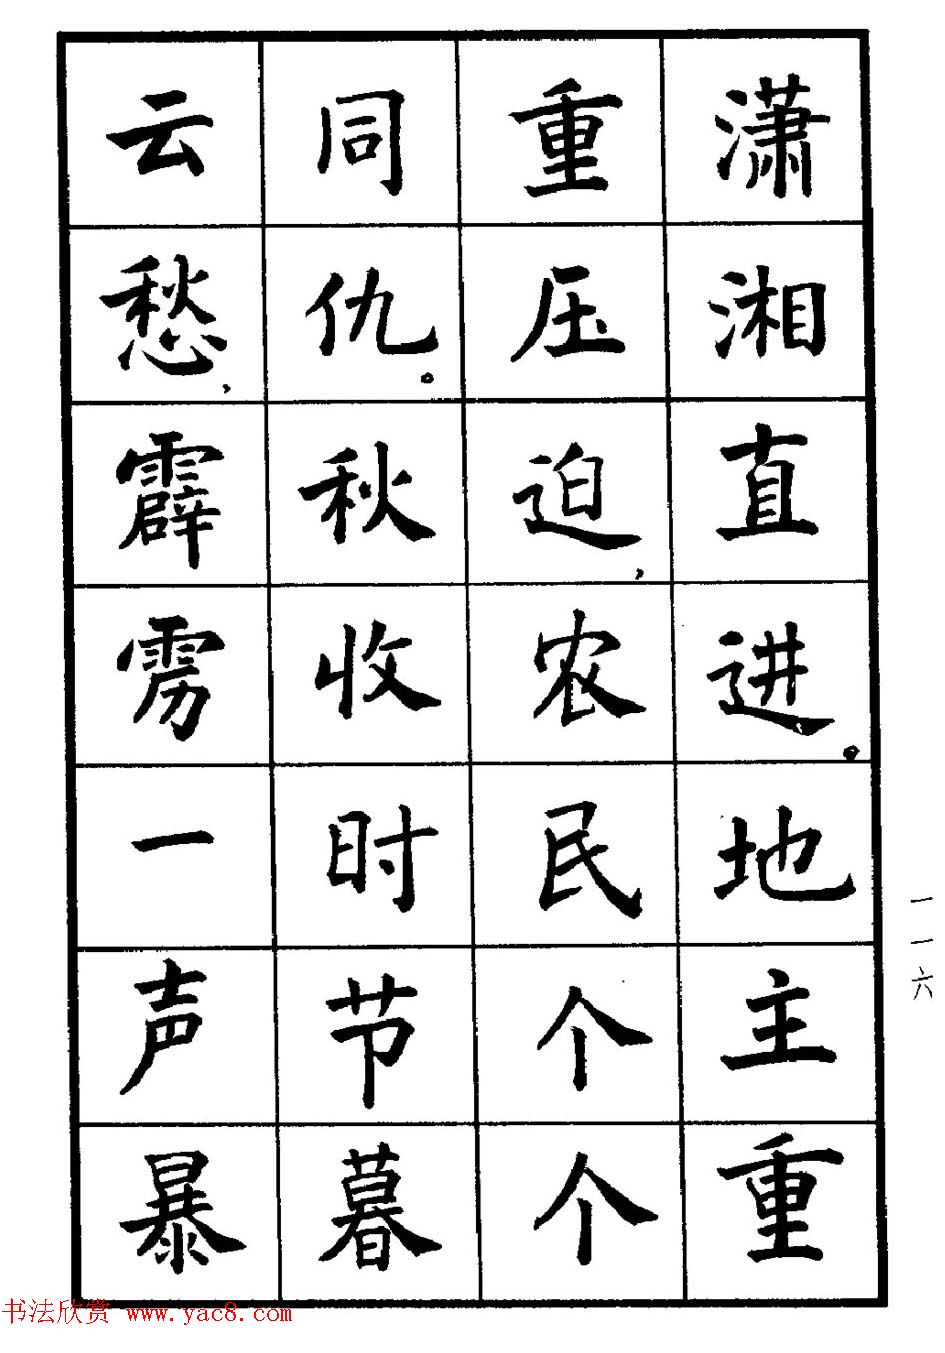 潇湘直进。地主重
重压迫，农民个个
同仇。秋收时节暮
云愁，霹雳一声暴
一一六
书法欣赏 www.yac8.com